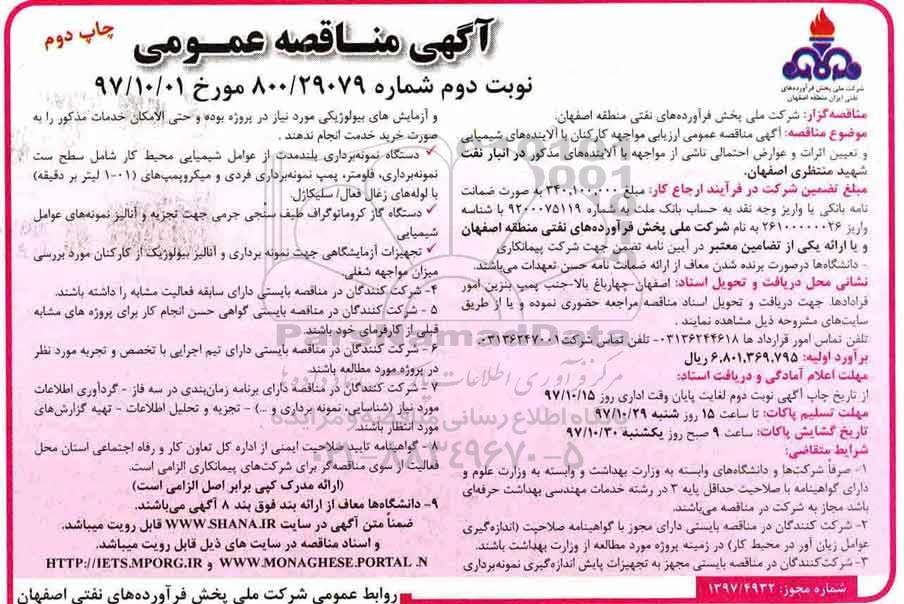 چاپ دوم
آگهی مناقصه عمومی
نوبت دوم شماره ۸۰۰/۲۹۰۷۹ مورخ ۹۷/۱۰/۰۱
شرکت ملی پخش فرآورده‌های
نفتی ایران منطقه اصفهان
مناقصه‌گزار: شرکت ملی پخش فرآورده‌های نفتی منطقه اصفهان.
موضوع مناقصه: آگهی مناقصه عمومی ارزیابی مواجهه کارکنان با آلاینده‌های شیمیایی
و تعیین اثرات و عوارض احتمالی ناشی از مواجهه با آلاینده‌های مذکور در انبار نفت
شهید منتظری اصفهان.
مبلغ تضمین شرکت در فرآیند ارجاع کار: مبلغ ۳۴۰,۱۰۰,۰۰۰ به صورت ضمانت
نامه بانکی یا واریز وجه نقد به حساب بانک ملت به شماره ۹۲۰۰۰۷۵۱۱۹ با شناسه
واریز ۲۶۱۰۰۰۰۰۰۲۶ به نام شرکت ملی پخش فرآورده‌های نفتی منطقه اصفهان
و یا ارائه یکی از تضامین معتبر در آیین نامه تضمن جهت شرکت پیمانکاری
- دانشگاه‌ها درصورت برنده شدن معاف از ارائه ضمانت نامه حسن تعهدات می‌باشند.
نشانی محل دریافت و تحویل اسناد: اصفهان-چهارباغ بالا-جنب پمپ بنزین امور
قرادادها. جهت دریافت و تحویل اسناد مناقصه مراجعه حضوری نموده و یا از طریق
سایت‌های مشروحه ذیل مشاهده نمایند.
تلفن تماس امور قرارداد ها ۰۳۱۳۶۲۴۴۶۱۸- تلفن تماس شرکت ۰۳۱۳۶۲۴۷۰۰۱.
برآورد اولیه: ۶,۸۰۱,۳۶۹,۷۹۵ ریال
مهلت اعلام آمادگی و دریافت اسناد:
از تاریخ چاپ آگهی نوبت دوم لغایت پایان وقت اداری روز ۹۷/۱۰/۱۵
مهلت تسلیم پاکات: تا ساعت ۱۵ روز شنبه ۹۷/۱۰/۲۹
تاریخ گشایش پاکات: ساعت ۹ صبح روز یکشنبه ۹۷/۱۰/۳۰
شرایط متقاضی:
۱- صرفاً شرکت‌ها و دانشگاه‌های وابسته به وزارت بهداشت و وابسته به وزارت علوم و
دارای گواهینامه با صلاحیت حداقل پایه ۳ در رشته خدمات مهندسی بهداشت حرفه‌ای
باشد مجاز به شرکت در مناقصه می‌باشند.
۲- شرکت کنندگان در مناقصه بایستی دارای مجوز با گواهینامه صلاحیت (اندازه‌گیری
عوامل زیان آور در محیط کار) در زمینه پروژه مورد مطالعه از وزارت بهداشت باشند.
۳- شرکت‌کنندگان در مناقصه بایستی مجهز به تجهیزات پایش اندازه‌گیری نمونه‌برداری
و آزمایش های بیولوژیکی مورد نیاز در پروژه بوده و حتی الامکان خدمات مذکور را به
صورت خرید خدمت انجام ندهند.
✓ دستگاه نمونه‌برداری بلندمدت از عوامل شیمیایی محیط کار شامل سطح ست
نمونه‌برداری، فلومتر، پمپ نمونه‌برداری فردی و میکروپمپ‌های (۰۱-۱ لیتر بر دقیقه)
با لوله‌های زغال فعال/ سلیکاژل.
✓ دستگاه گاز کروماتوگراف طیف سنجی جرمی جهت تجزیه و آنالیز نمونه‌های عوامل
شیمیایی
✓ تجهیزات آزمایشگاهی جهت نمونه برداری و آنالیز بیولوژیک از کارکنان مورد بررسی
میزان مواجهه شغلی.
۴- شرکت کنندگان در مناقصه بایستی دارای سابقه فعالیت مشابه را داشته باشند.
۵ - شرکت کنندگان در مناقصه بایستی گواهی حسن انجام کار برای پروژه های مشابه
قبلی از کارفرمای خود باشند
۶ - شرکت کنندگان در مناقصه بایستی دارای تیم اجرایی با تخصص و تجربه مورد نظر
در پروژه مورد مطالعه باشند.
۷ - شرکت کنندگان در مناقصه دارای برنامه زمان‌بندی در سه فاز - گردآوری اطلاعات
مورد نیاز (شناسایی، نمونه برداری و ...) - تجزیه و تحلیل اطلاعات - تهیه گزارش‌های
مورد انتظار باشند.
۸ - گواهینامه تایید صلاحیت ایمنی از اداره کل تعاون کار و رفاه اجتماعی استان محل
فعالیت از سوی مناقصه‌گر برای شرکت‌های پیمانکاری الزامی است.
(ارائه مدرک کپی برابر اصل الزامی است)
۹- دانشگاه‌ها معاف از ارائه بند فوق بند ۸ آگهی می‌باشند.
ضمناً متن آگهی در سایت WWW.SHANA.IR قابل رویت میباشد.
و اسناد مناقصه در سایت های ذیل قابل رویت میباشد.
HTTP://IETS.MPORG.IR و WWW.MONAGHESE.PORTAL .N
شماره مجوز: ۱۳۹۷/۴۹۳۲
روابط عمومی شرکت ملی پخش فرآورده‌های نفتی اصفهان
ParsNamadData
مرکز فرآوری اطلاعات پارس نماد داده‌ها
پایگاه اطلاع رسانی مناقصه و مزایده
۰۲۱-۸۸۳۴۹۶۷۰-۵